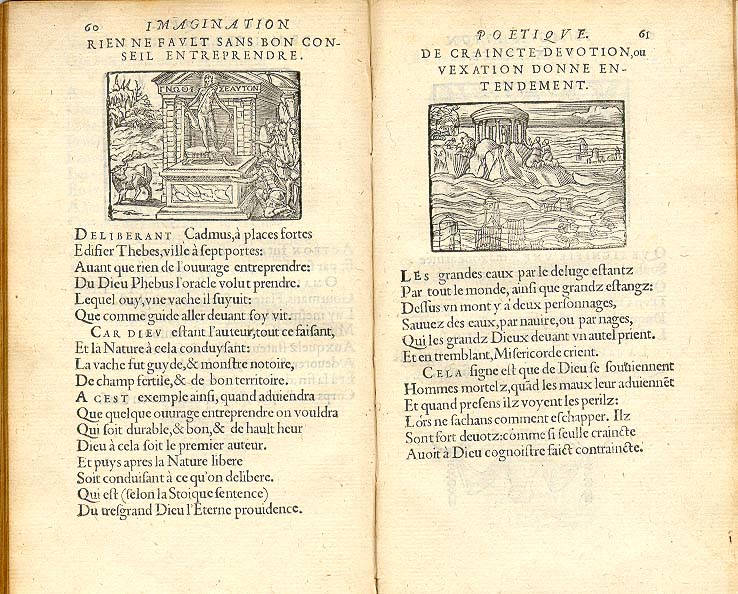 60 IMAGINATION
RIEN NE FAVLT SANS BON CON-
SEIL ENTREPRENDRE.
ΓΝΩΘΙ ΣΕΑΥΤΟΝ
DELIBERANT Cadmus, à places fortes
Edifier Thebes, ville à sept portes:
Auant que rien de l'ouurage entreprendre:
Du Dieu Phebus l'oracle volut prendre.
Lequel ouy, vne vache il suyuit:
Que comme guide aller deuant soy vit.
CAR DIEV estant l'auteur, tout ce faisant,
Et la Nature à cela conduysant:
La vache fut guyde, & monstre notoire,
De champ fertile, & de bon territoire.
A CEST exemple ainsi, quand aduiendra
Que quelque ouurage entreprendre on vouldra
Qui soit durable, & bon, & de hault heur
Dieu à cela soit le premier auteur.
Et puys apres la Nature libere
Soit conduisant à ce qu'on delibere.
Qui est (selon la Stoique sentence)
Du tresgrand Dieu l'Eterne prouidence.
POETIQVE. 61
DE CRAINCTE DEVOTION, ou
VEXATION DONNE EN-
TENDEMENT.
LES grandes eaux par le deluge estantz
Par tout le monde, ainsi que grandz estangz:
Dessus vn mont y a deux personnages,
Sauuez des eaux, par nauire, ou par nages,
Qui les grandz Dieux deuant vn autel prient.
Et en tremblant, Misericorde crient.
CELA signe est que de Dieu se soutiennent
Hommes mortelz, quãd les maux leur aduiennẽt
Et quand presens ilz voyent les perilz:
Lors ne sachans comment eschapper. Ilz
Sont fort deuotz: comme si seulle craincte
Auoit à Dieu cognoistre faict contraincte.